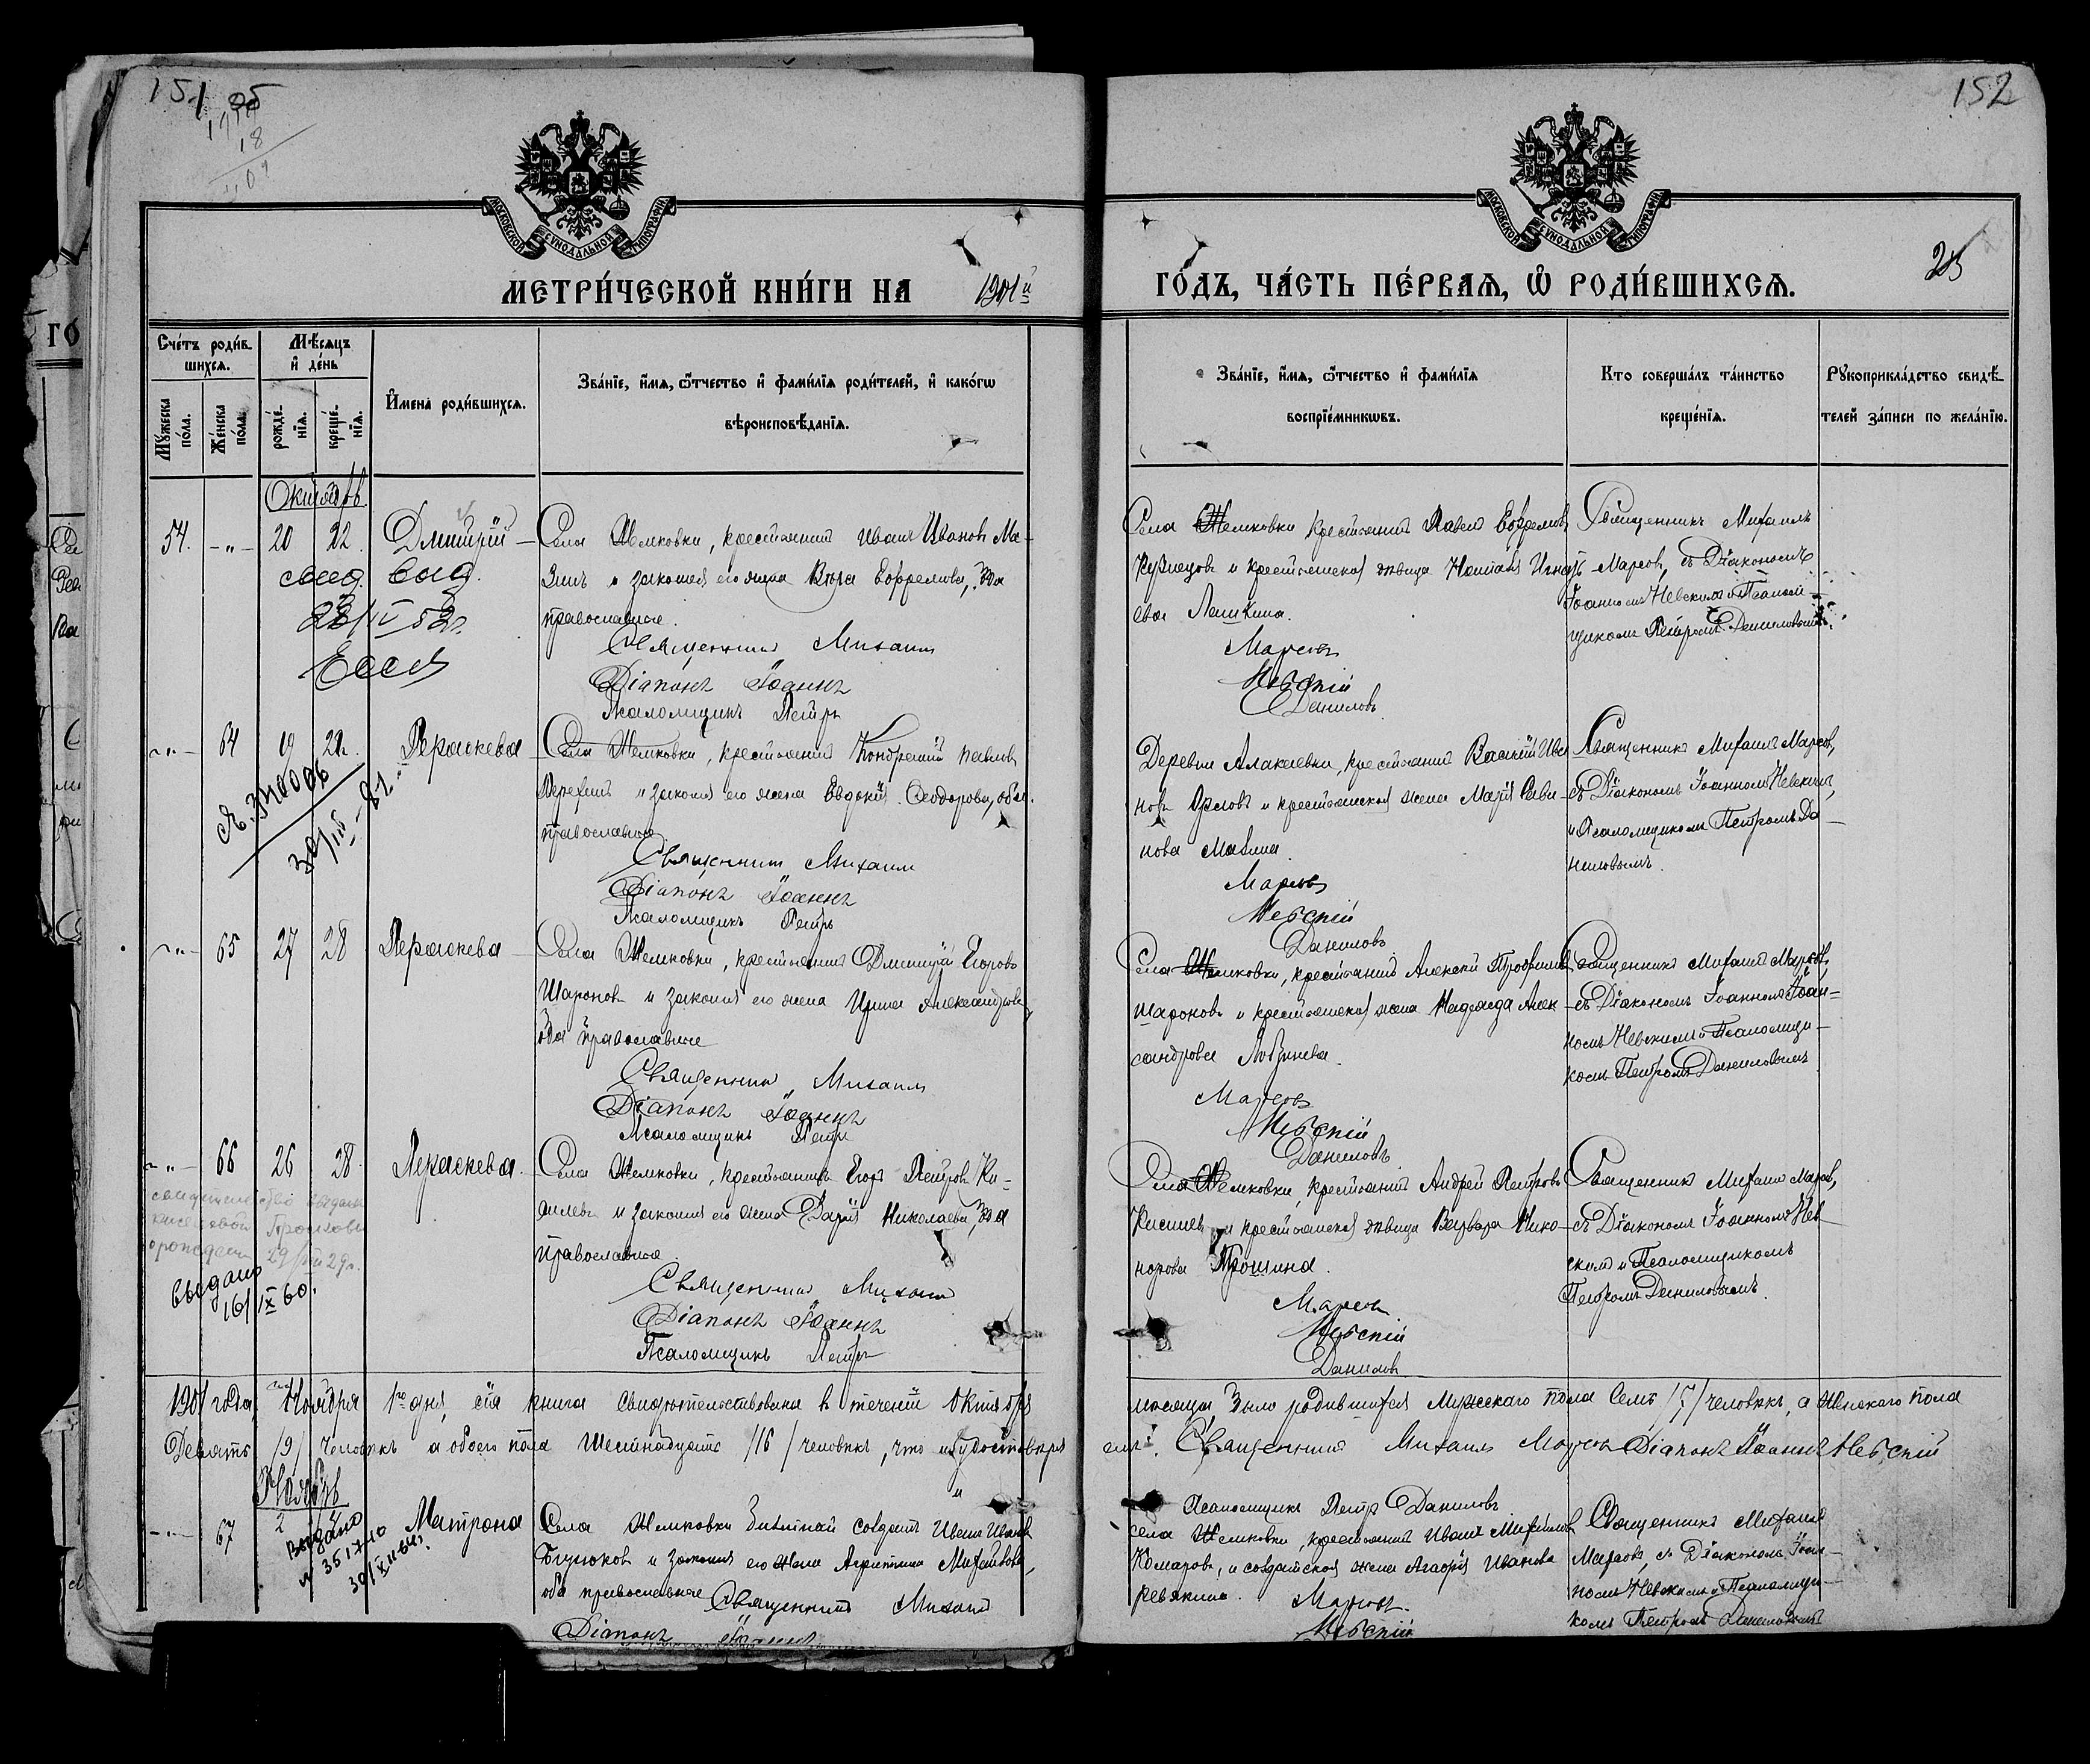 151 об
152
МОСКОВСКОЙ СѴНОДАЛЬНОЙ ТИПОГРАФІИ
МОСКОВСКОЙ СѴНОДАЛЬНОЙ ТИПОГРАФІИ
МЕТРИ́ЧЕСКОЙ КНИ́ГИ НА 1901й
ГО́ДЪ, ЧА́СТЬ ПЕ́РВАЯ, Ѡ҆ РОДИ́ВШИХСЯ.
Сче́тъ роди́в-
шихся.
Мꙋ́жеска по́ла.
Же́нска по́ла.
Мѣ́сяцъ и҆ де́нь
рожде́-нїя.
креще́-нїя.
И҆мена̀ роди́вшихся.
Зва́нїе, и҆́мя, ѻ҆́тчество и҆ фами́лїя роди́телей, и҆ како́гѡ
вѣроисповѣ́данїя.
Зва́нїе, и҆́мя, ѻ҆́тчество и҆ фами́лїя
воспрїе́мникѡвъ.
Кто̀ соверша́лъ та́инство
креще́нїя.
Рꙋкоприкла́дство свидѣ́-
телей за́писи по жела́нїю.
Октябрь
54. -"- 20 22 Дмитрій
Села Жемковки, крестьянинъ Иванъ Ивановъ Ма-
зинъ и законная его жена Вера Ефремова, оба
православные.
Священникъ Михаилъ
Діаконъ Іоаннъ
Псаломщикъ Петръ
Села Жемковки крестьянинъ Павелъ Ефремовъ
Кузнецовъ и крестьянская дѣвица Наталія Игнать-
ева Лашкина.
Марсовъ
Невскій
Даниловъ
Священникъ Михаилъ
Марсовъ, съ Діакономъ
Іоанномъ Невскимъ и Псалом-
щикомъ Петромъ Даниловымъ.
-"- 64 19 21. Параскева
Села Жемковки, крестьянинъ Кондратій Павловъ
и законная его жена Евдокія Ѳеодорова, оба
православные
Священникъ Михаилъ
Діаконъ Іоаннъ
Псаломщикъ Петръ
Деревни Алакаевки, крестьянинъ Василій Ива-
новъ Орловъ и крестьянская жена Марія
Марсовъ
Невскій
Даниловъ
Священникъ Михаилъ Марсовъ,
съ Діакономъ Іоанномъ Невскимъ,
и Псаломщикомъ Петромъ Да-
ниловымъ.
-"- 65 27 28 Параскева
Села Жемковки, крестьянинъ Димитрій Егоровъ
Шароновъ и законная его жена Ирина Александрова,
оба православные
Священникъ Михаилъ
Діаконъ Іоаннъ
Псаломщикъ Петръ
Села Жемковки, крестьянинъ Алексѣй Трофимовъ
Шароновъ и крестьянская жена Надежда Алек-
сандрова
Марсовъ
Невскій
Даниловъ
Священникъ Михаилъ Марсовъ,
съ Діакономъ Іоанномъ Іоан-
номъ Невскимъ и Псаломщи-
комъ Петромъ Даниловымъ
-"- 66 26 28. Параскева.
Села Жемковки, крестьянинъ Егоръ Петровъ Ки-
селевъ и законная его жена Дарія Николаева, оба
православные.
Священникъ Михаилъ
Діаконъ Іоаннъ
Псаломщикъ Петръ
выдано
16/IX 60.
Села Жемковки, крестьянинъ Андрей Петровъ
Киселевъ и крестьянская дѣвица Варвара Нико-
норова Трошина.
Марсовъ
Невскій
Даниловъ
Священникъ Михаилъ Марсовъ,
съ Діакономъ Іоанномъ Нев-
скимъ и Псаломщикомъ
Петромъ Даниловымъ.
1901 года, Ноября 1го дня, сія книга свидѣтельствована въ теченіи Октября мѣсяца было родившихся мужскаго пола семь /7/ человѣкъ, а женскаго пола
Девять /9/ человѣкъ а обоего пола Шестнадцать /16/ человѣкъ, что и удостовѣряемъ: Священникъ Михаилъ Марсовъ Діаконъ Іоаннъ Невскій
Псаломщикъ Петръ Даниловъ
Ноябрь
-"- 67 2 Матрона
Выдано
Села Жемковки билетный солдатъ Иванъ Ивановъ
и законная его жена Агриппина Михайлова,
оба православные Священникъ Михаилъ
Діаконъ Іоаннъ
Села Жемковки, крестьянинъ Иванъ Михайловъ
Комаровъ, и солдатская жена Иванова
Ревякина. Марсовъ.
Невскій
Священникъ Михаилъ
Марсовъ, съ Діакономъ Іоан-
номъ Невскимъ и Псаломщи-
комъ Петромъ Даниловымъ